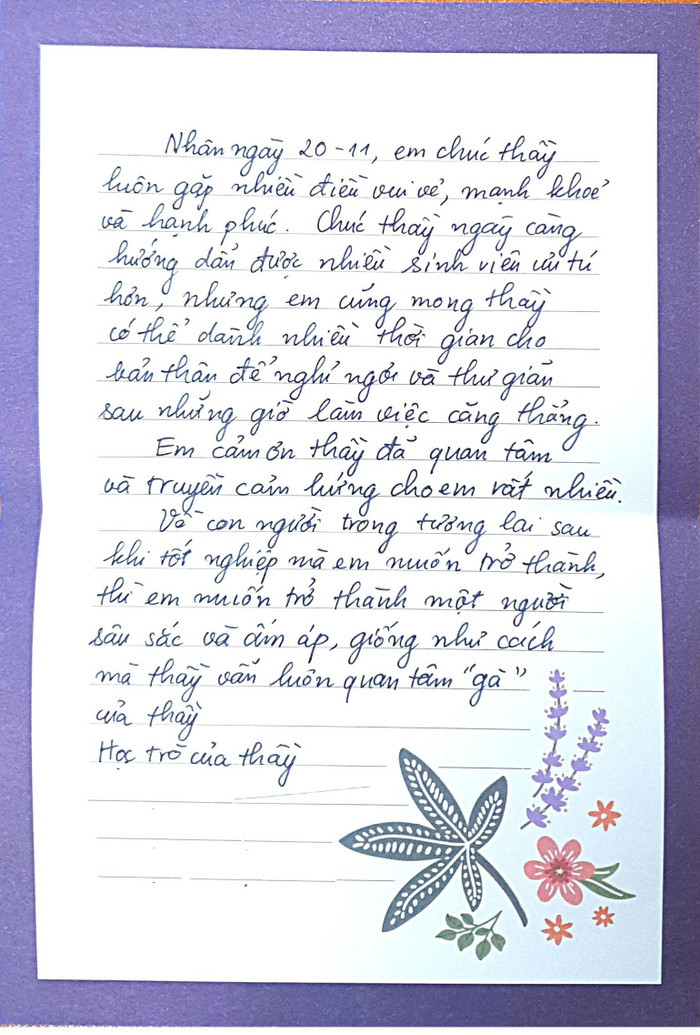 Nhân ngày 20-11, em chúc thầy
luôn gặp nhiều điều vui vẻ, mạnh khoẻ
và hạnh phúc. Chúc thầy ngày càng
hướng dẫn được nhiều sinh viên ưu tú
hơn, nhưng em cũng mong thầy
có thể dành nhiều thời gian cho
bản thân để nghỉ ngơi và thư giãn
sau những giờ làm việc căng thẳng.
Em cảm ơn thầy đã quan tâm
và truyền cảm hứng cho em rất nhiều.
Về con người trong tương lai sau
khi tốt nghiệp mà em muốn trở thành,
thì em muốn trở thành một người
sâu sắc và ấm áp, giống như cách
mà thầy vẫn luôn quan tâm "gà"
của thầy
Học trò của thầy